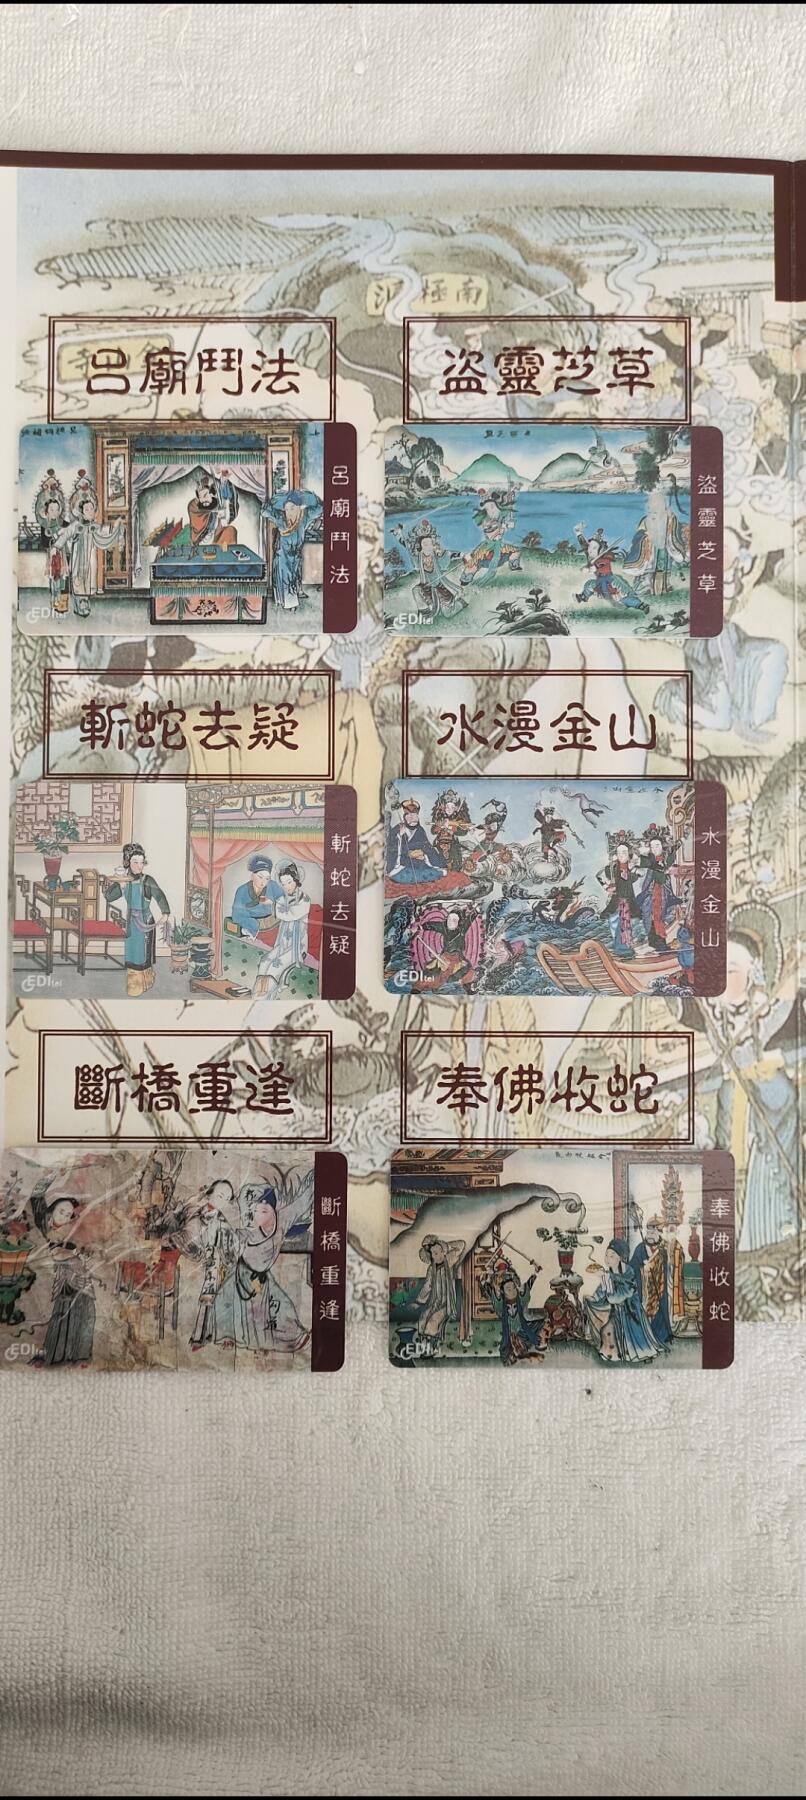 南極
呂廟鬥法
盜靈芝草
呂廟鬥法
EDItel
盜靈芝草
EDItel
斬蛇去疑
水漫金山
斬蛇去疑
EDItel
水漫金山
EDItel
斷橋重逢
奉佛收蛇
斷橋重逢
EDItel
奉佛收蛇
EDItel